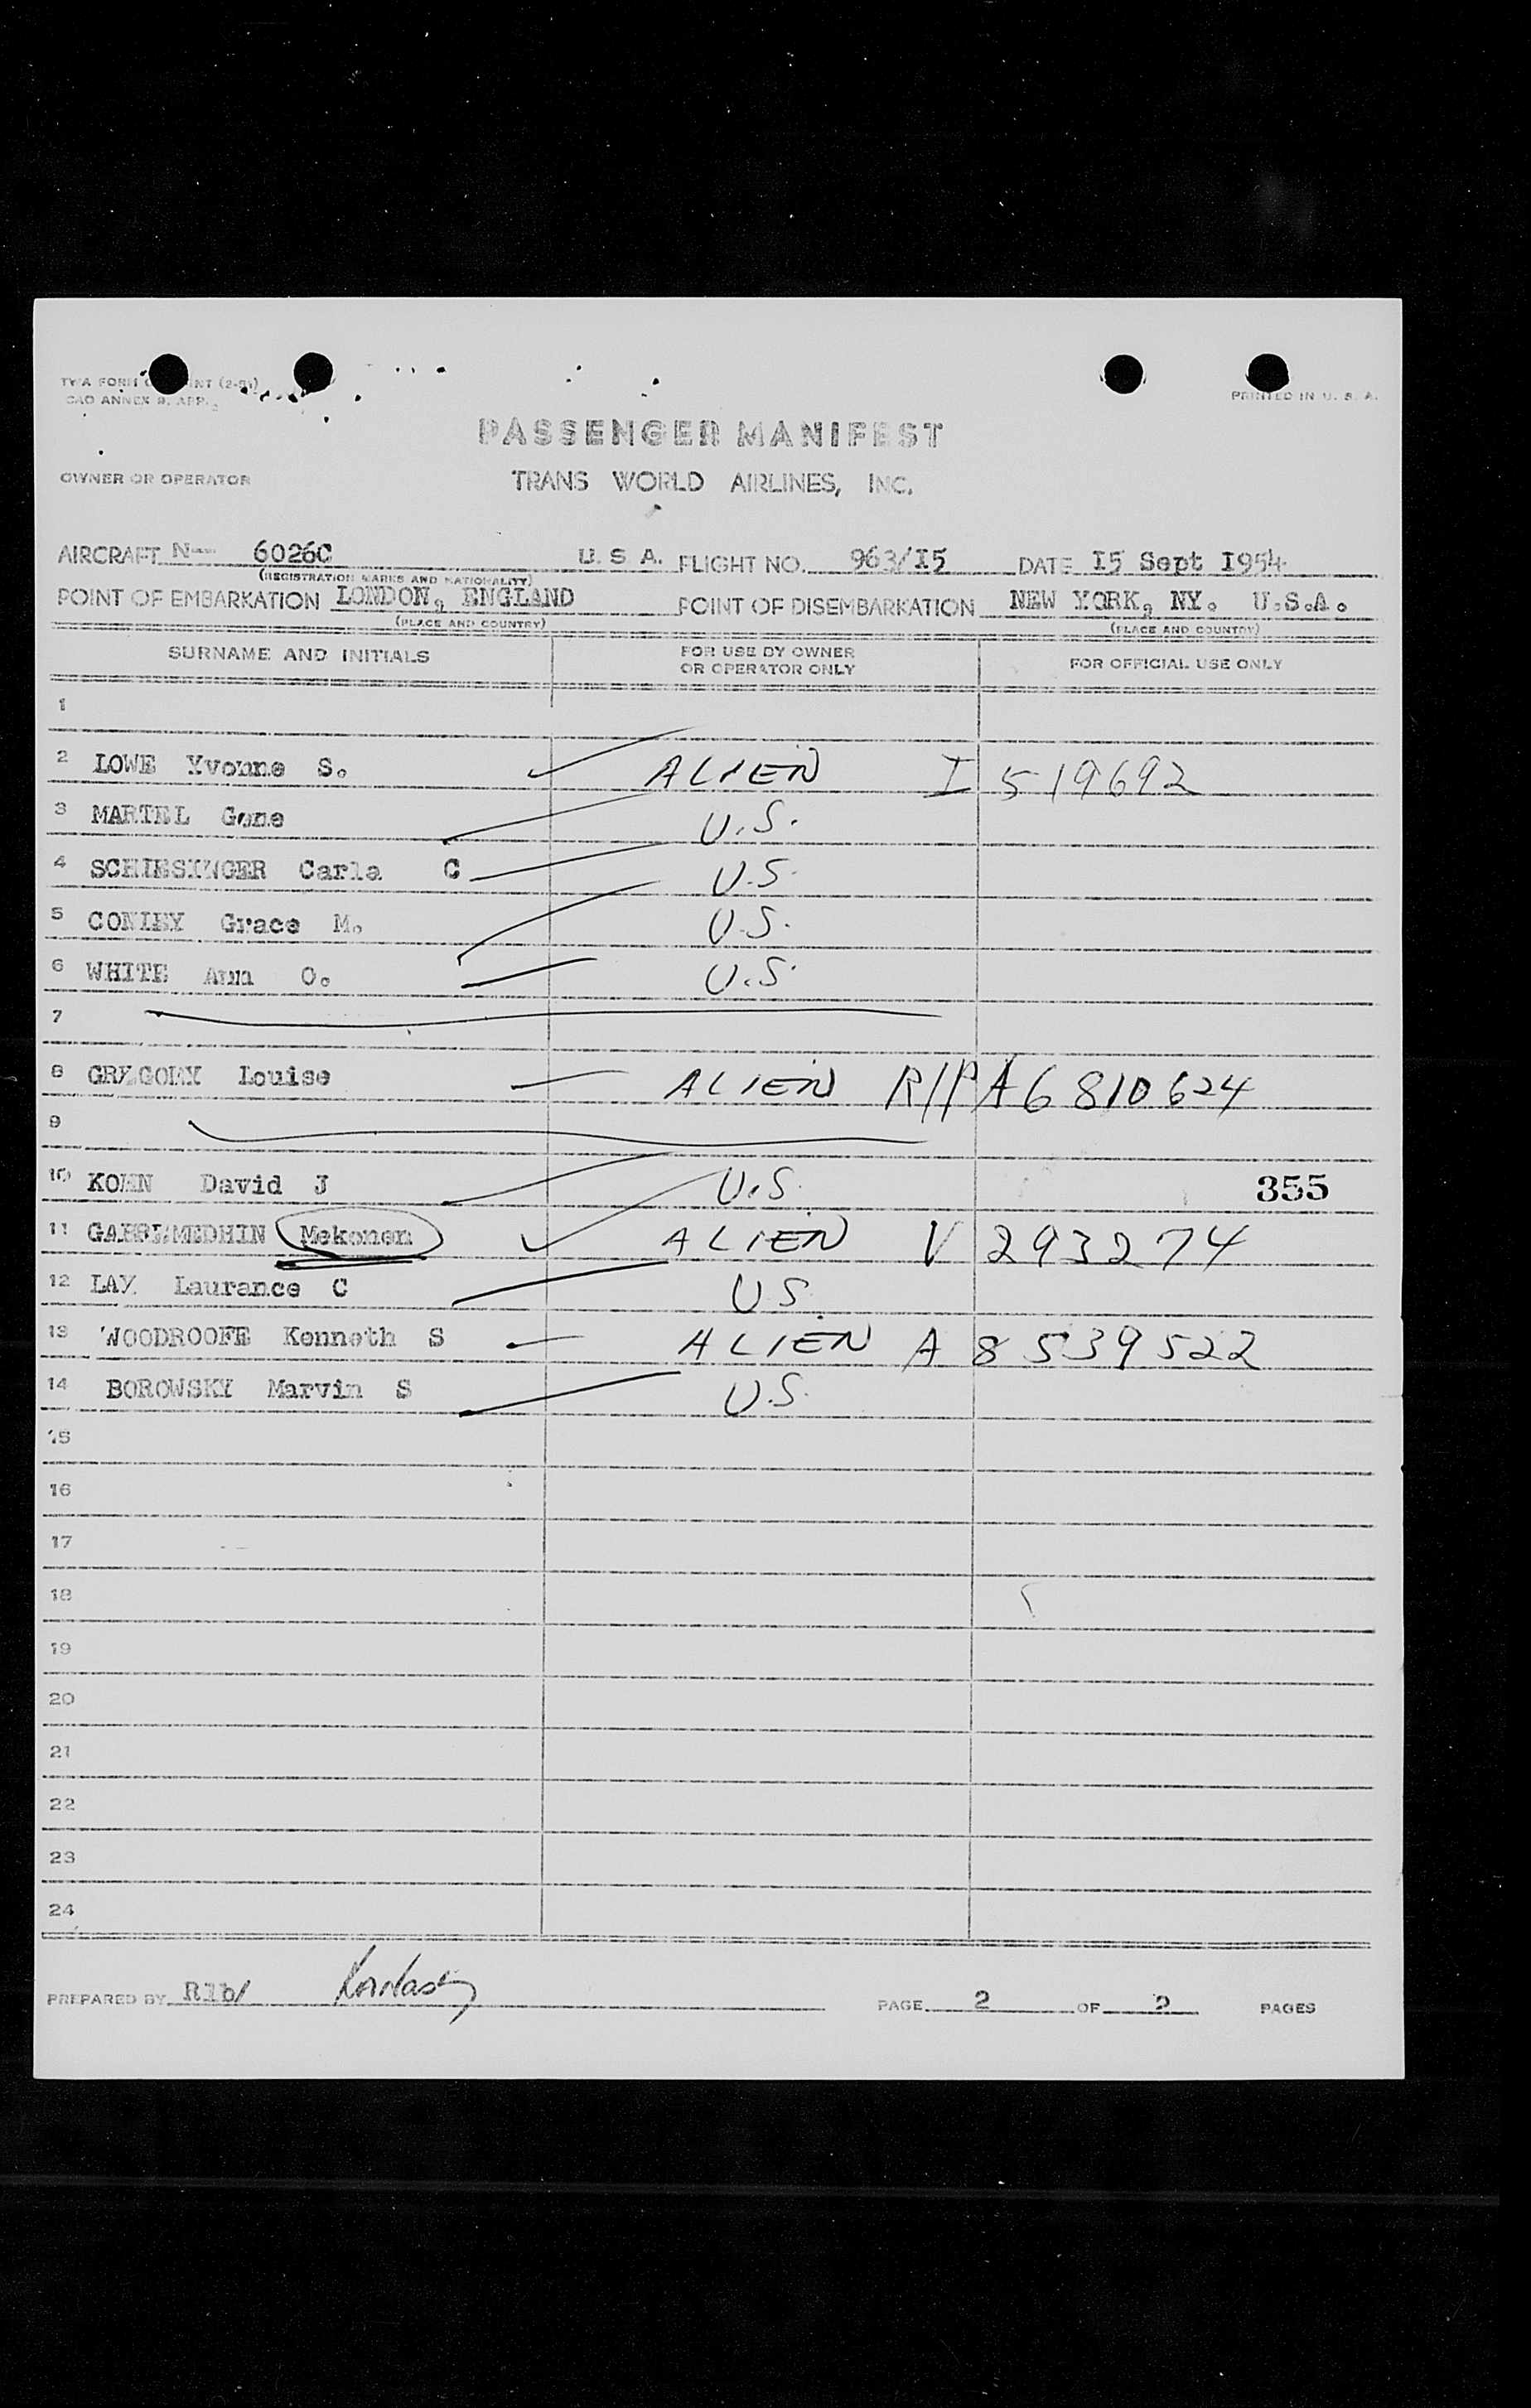 TWA FORM INT (2-51)
CAO ANNEX 9, APP.
PRINTED IN U. S. A.
PASSENGER MANIFEST
OWNER OR OPERATOR
TRANS WORLD AIRLINES, INC.
AIRCRAFT N-- 6026C U. S A. FLIGHT NO. 963/I5 DATE I5 Sept I954
(REGISTRATION MARKS AND NATIONALITY)
POINT OF EMBARKATION LONDON, ENGLAND POINT OF DISEMBARKATION NEW YORK, NY. U.S.A.
(PLACE AND COUNTRY) (PLACE AND COUNTRY)
SURNAME AND INITIALS FOR USE BY OWNER OR OPERATOR ONLY FOR OFFICIAL USE ONLY
1
2 LOWE Yvonne S. ALIEN I 519692
3 MARTEL Gene U.S.
4 SCHIESINGER Carla C U.S.
5 CONIEY Grace M. U.S.
6 WHITE Ann O. U.S.
7
8 GREGORY Louise ALIEN R/P A6 810624
9
10 KOHN David J U.S. 355
11 GABREMEDHIN Mekonen ALIEN V 293274
12 LAY Laurance C US
13 WOODROOFE Kenneth S ALIEN A 8539522
14 BOROWSKY Marvin S U.S.
15
16
17
18
19
20
21
22
23
24
PREPARED BY PAGE 2 OF 2 PAGES